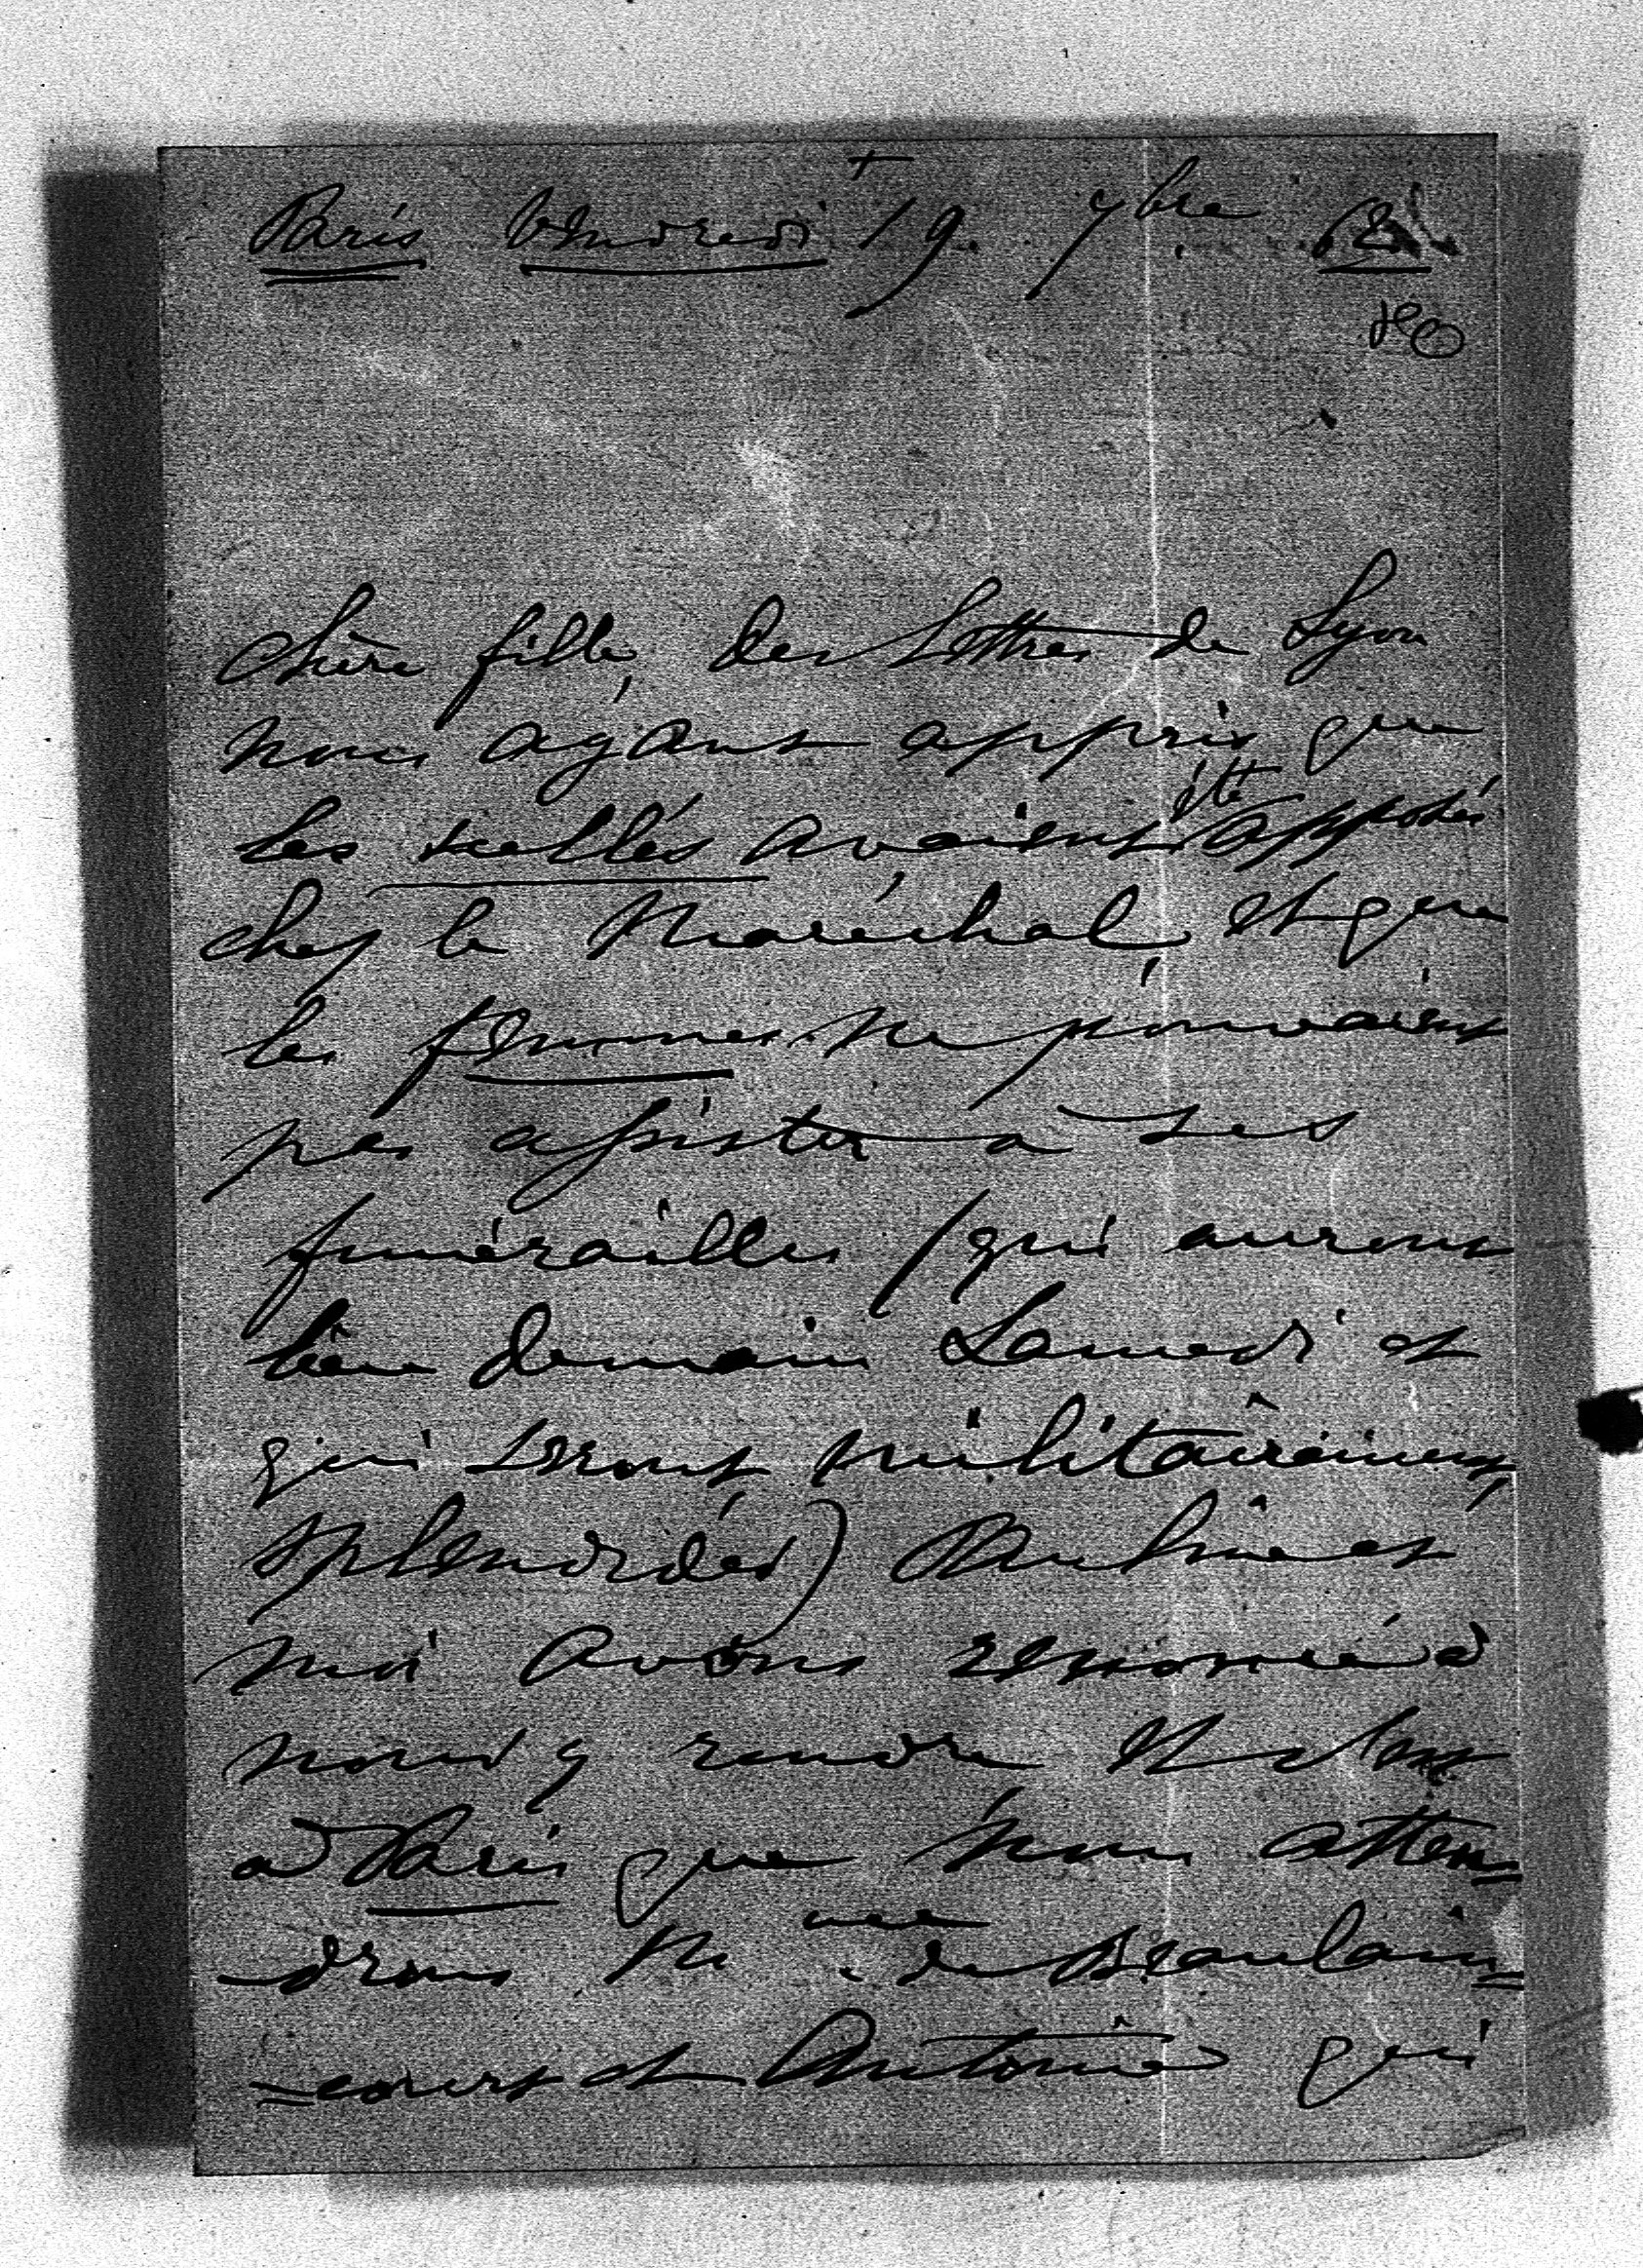 Paris Vendredi 19. 7bre 62
chère fille, des Lettres de Lyon
nous ayant appris que
les scellés avaient été apposés
chez le Maréchal, et que
les femmes ne pouvaient
pas assister à ses
funérailles (qui auront
lieu demain Samedi et
qui seront militairement
splendides) et
moi avons renoncé à
nous y rendre, et c'est
à Paris que nous atten=
drons Mme de Beaulain=
=court et Antonie qui